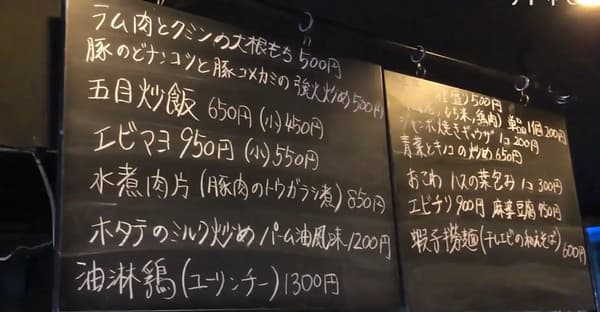 ラム肉とクミンの大根もち 500円
豚のどナンコツと豚コメカミの強火炒め 500円
五目炒飯 650円 (小)450円
エビマヨ 950円 (小)550円
水煮肉片 (豚肉のトウガラシ煮) 850円
ホタテのミルク炒め パーム油風味 1200円
油淋鶏 (ユーリンチー) 1300円
盛) 500円
もち米, 鶏肉) 単品1個200円
ジャンボ焼きギョウザ 1コ 200円
青菜とキノコの炒め 650円
おこわ ハスの葉包み 1コ 300円
エビチリ 900円 麻婆豆腐 950円
蝦子撈麺 (干しエビの和えそば) 600円